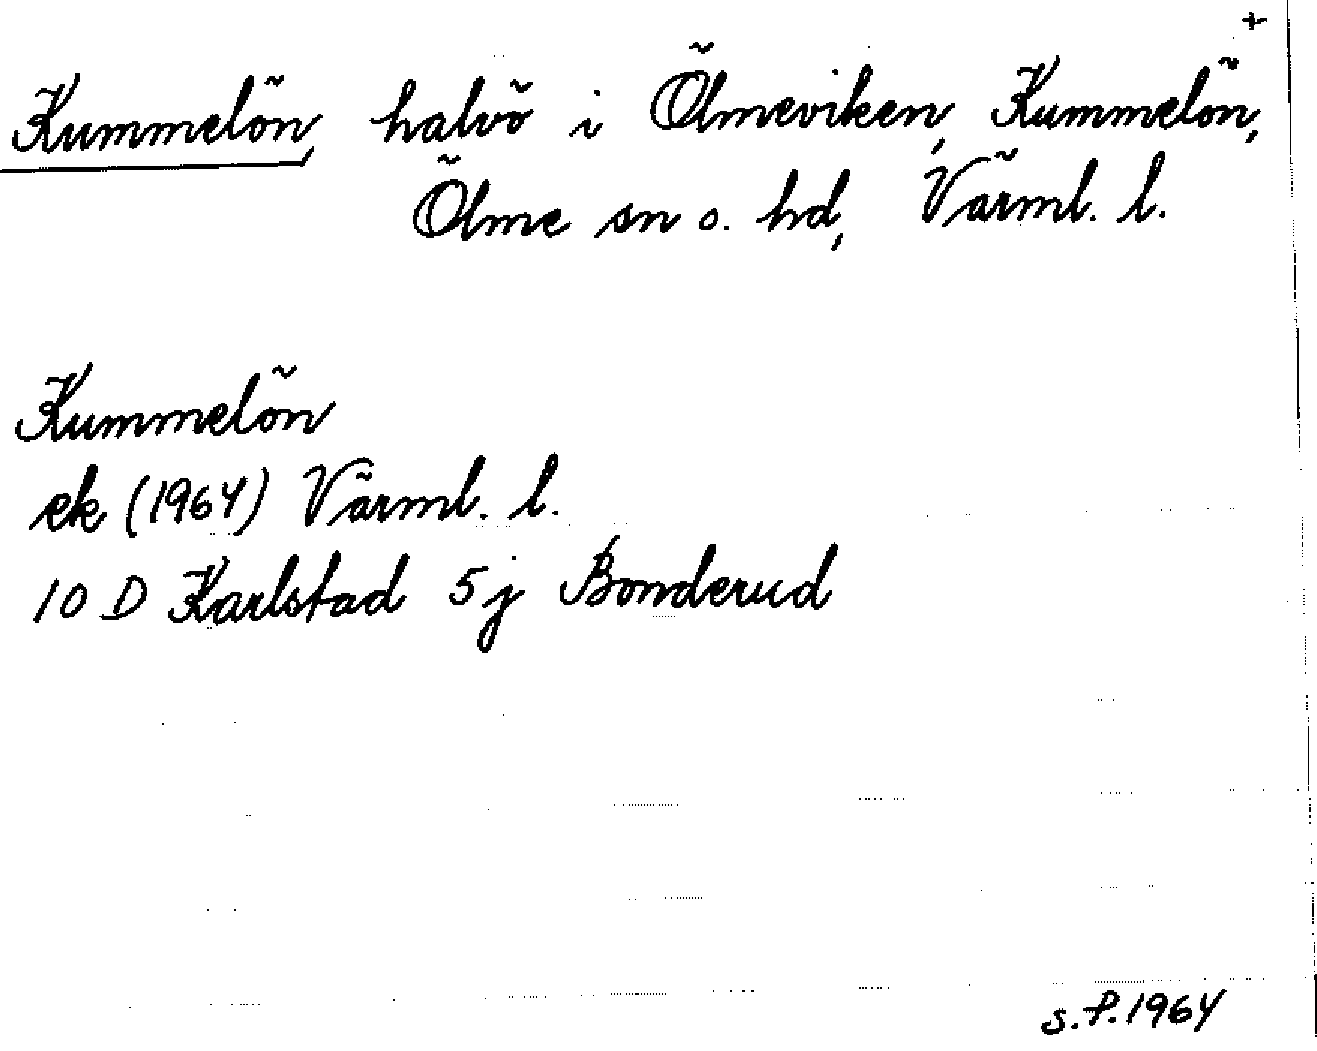 +
Kummelön, halvö i Ölmeviken, Kummelön,
Ölme sn o. hd, Värml. l.
Kummelön
ek (1964) Värml. l.
10 D Karlstad 5 j Bonderud
S.P.1964